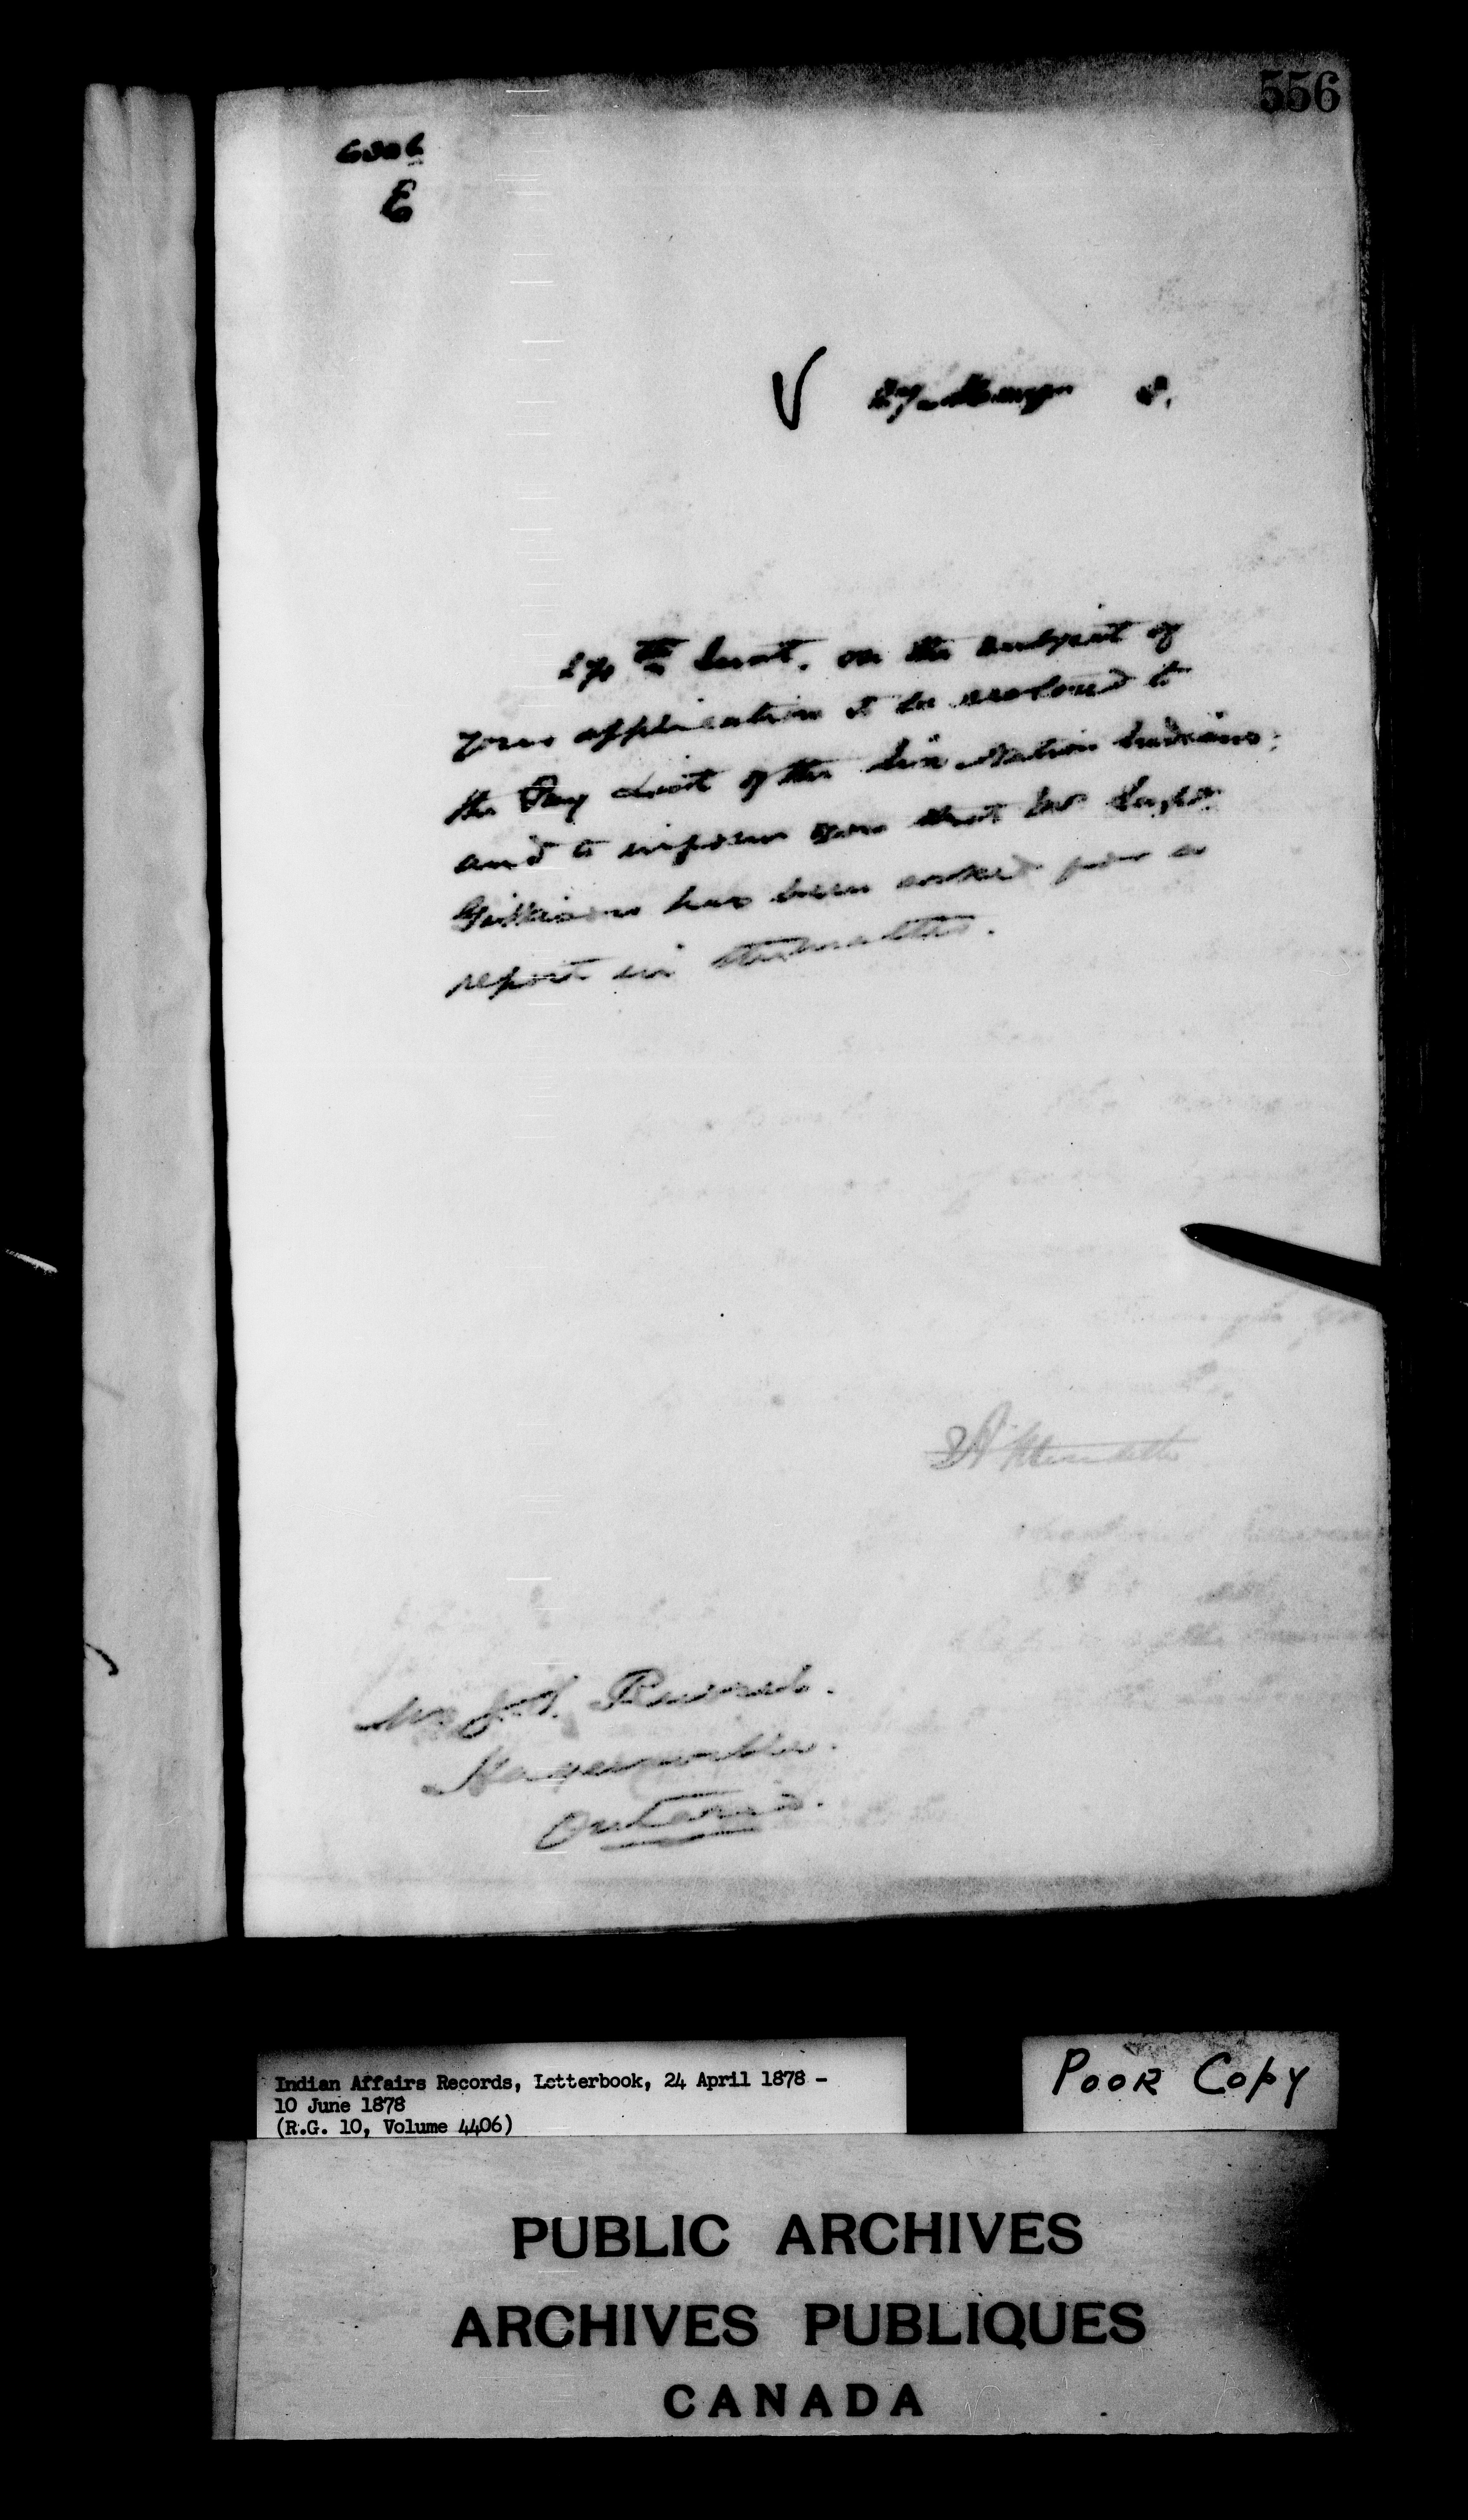 556
6306
E
27 May 8.
27th Inst. on the subject of
your application to be restored to
the Pay List of the Six Nation Indians;
and to inform you that Mr Supt.
Gilkison has been asked for a
report in the matter.
Mr J.
Hagersville.
Ontario.
Indian Affairs Records, Letterbook, 24 April 1878 -
10 June 1878
(R.G. 10, Volume 4406)
POOR COPY
PUBLIC ARCHIVES
ARCHIVES PUBLIQUES
CANADA